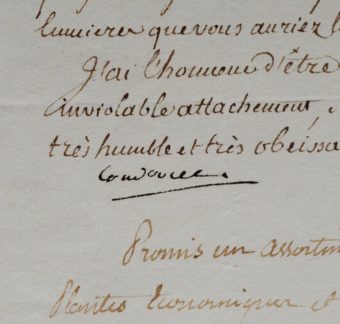 lumieres que vous auriez l
J'ai l'honneur d'être
inviolable attachement,
très humble et très obéissa
Condorcet
Promis un assortim
Plantes Economiques et